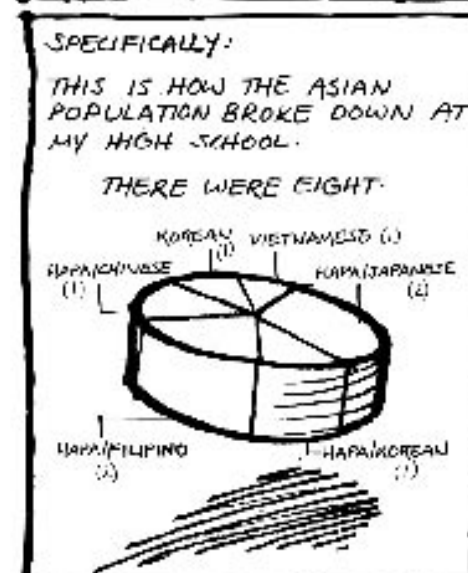 SPECIFICALLY:
THIS IS HOW THE ASIAN
POPULATION BROKE DOWN AT
MY HIGH SCHOOL.
THERE WERE EIGHT.
KOREAN
(1)
VIETNAMESE (1)
HAPA/CHINESE
(1)
HAPA/JAPANESE
(2)
HAPA/FILIPINO
(2)
HAPA/KOREAN
(1)